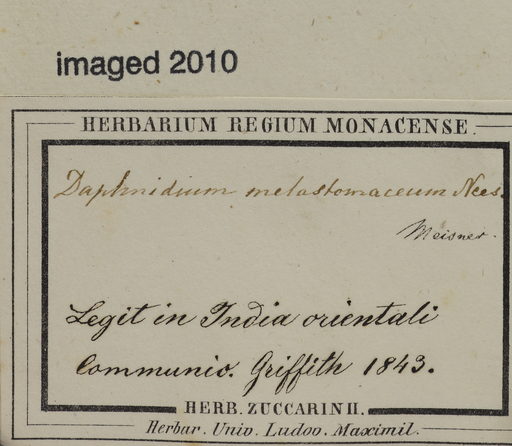 imaged 2010
HERBARIUM REGIUM MONACENSE.
Daphnidium melastomaceum Nees.
Meisner.
Legit in India orientali
Communic. Griffith 1843.
HERB. ZUCCARINII.
Herbar. Univ. Ludov. Maximil.